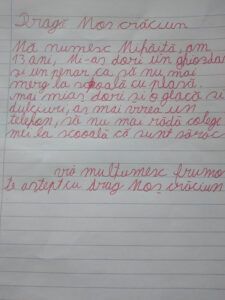 Dragă Moș crăciun
Mă numesc Mihăiță, am
13 ani, Mi-aș dori un ghiozdan
și un penar ca să nu mai
merg la școală cu plasă.
mai mias dori si o glacă si
dulciuri, as mai vrea un
telefon, să nu mai râdă colegi
mei la scoală că sunt sărăc
vă mulțumesc frumo
te astept cu drag Moș crăciun